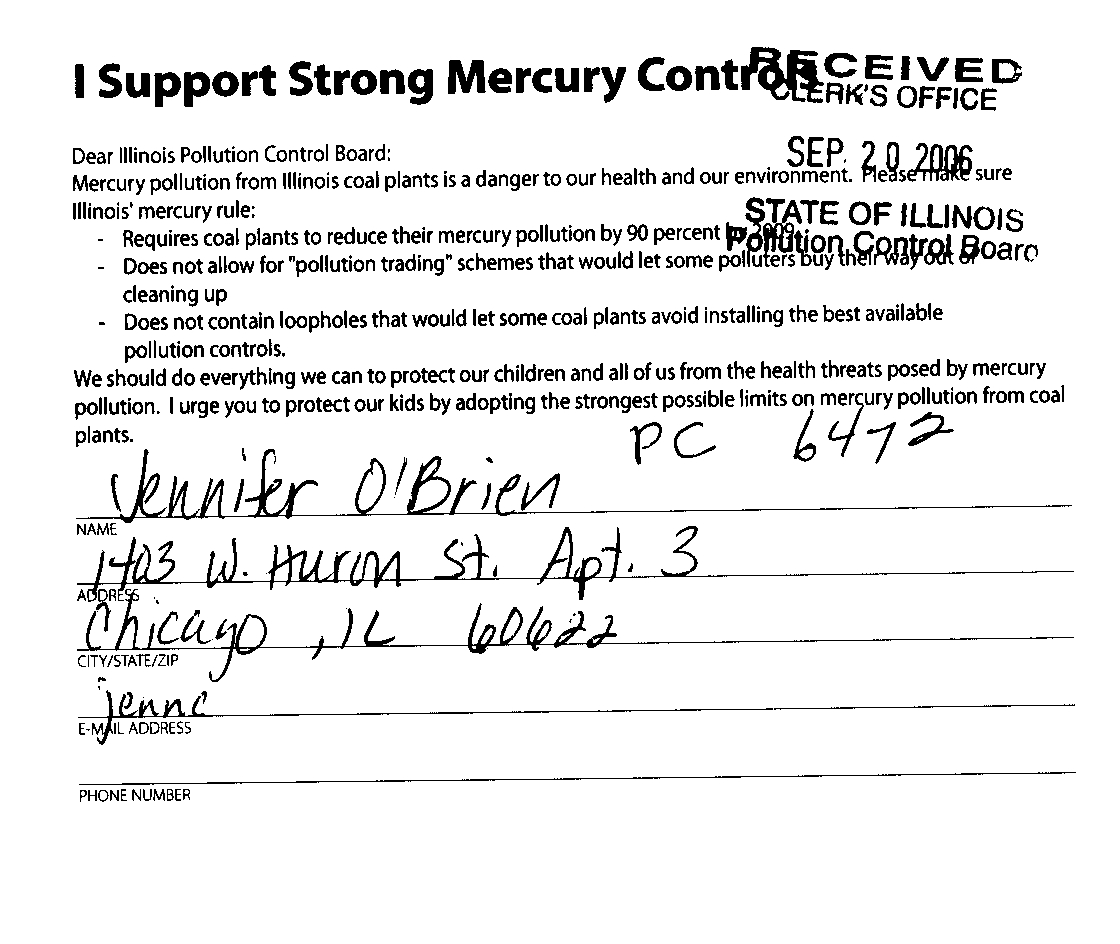 I Support Strong Mercury Controls
RECEIVED
CLERK'S OFFICE
SEP. 20 2006
STATE OF ILLINOIS
Pollution Control Board
Dear Illinois Pollution Control Board:
Mercury pollution from Illinois coal plants is a danger to our health and our environment. Please make sure
Illinois' mercury rule:
- Requires coal plants to reduce their mercury pollution by 90 percent by 2009.
- Does not allow for "pollution trading" schemes that would let some polluters buy their way out of
cleaning up
- Does not contain loopholes that would let some coal plants avoid installing the best available
pollution controls.
We should do everything we can to protect our children and all of us from the health threats posed by mercury
pollution. I urge you to protect our kids by adopting the strongest possible limits on mercury pollution from coal
plants.
PC 6472
Jennifer O'Brien
NAME
1403 W. Huron St. Apt. 3
ADDRESS
Chicago, IL 60622
CITY/STATE/ZIP
E-MAIL ADDRESS
PHONE NUMBER